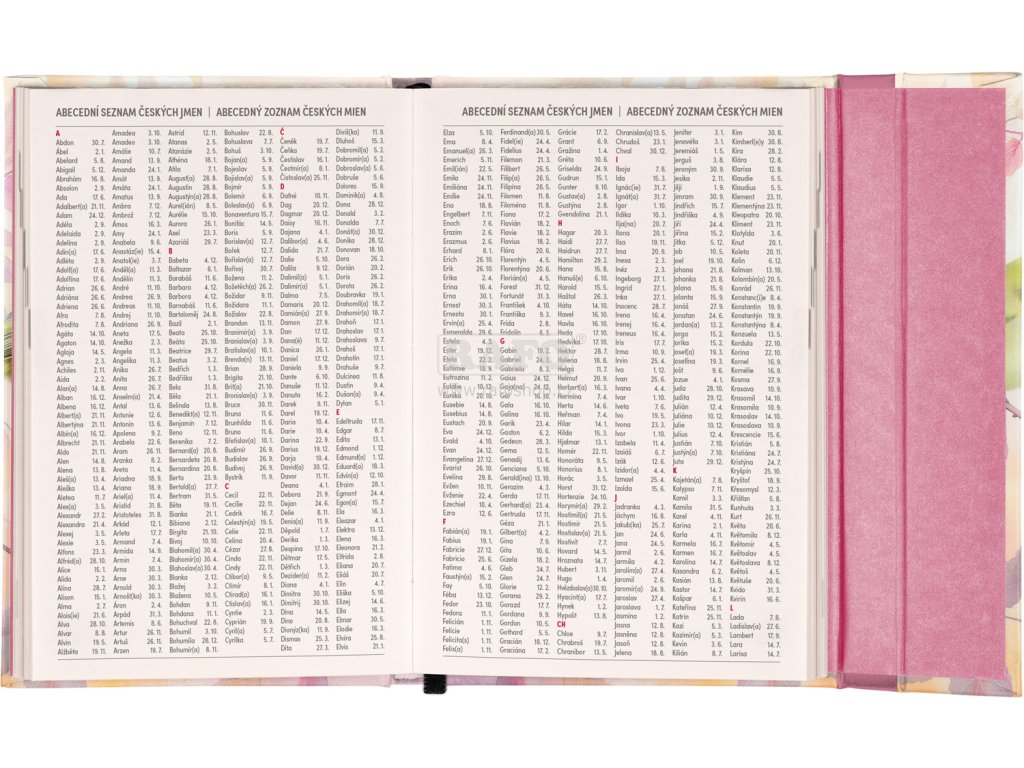 ABECEDNÍ SEZNAM ČESKÝCH JMEN | ABECEDNÝ ZOZNAM ČESKÝCH MIEN
A
Abdon 30. 7.
Ábel 2. 1.
Abelard 5. 8.
Abigail 5. 12.
Abrahám 16. 8.
Absolon 2. 9.
Ada 17. 6.
Adalbert(a) 21. 11.
Adam 24. 12.
Adéla 2. 9.
Adelaida 2. 9.
Adelína 2. 9.
Adin(a) 17. 6.
Adléta 2. 9.
Adolf(a) 17. 6.
Adolfína 17. 6.
Adrian 26. 6.
Adriána 26. 6.
Adriena 26. 6.
Afra 7. 8.
Afrodita 7. 8.
Agáta 14. 10.
Agaton 14. 10.
Aglaja 14. 5.
Agnes 2. 3.
Achiles 2. 11.
Aida 2. 2.
Alan(a) 14. 8.
Alban 16. 12.
Albena 16. 12.
Albert(a) 21. 11.
Albertýna 21. 11.
Albín(a) 16. 12.
Albrecht 21. 11.
Aldo 21. 11.
Alen 14. 8.
Alena 13. 8.
Aleš(a) 13. 4.
Aleška 13. 4.
Aletea 11. 7.
Alex(a) 3. 5.
Alexandr 27. 2.
Alexandra 21. 4.
Alexej 3. 5.
Alexie 3. 5.
Alfons 23. 3.
Alfréd(a) 28. 10.
Alice 15. 1.
Alida 2. 2.
Alina 28. 7.
Alison 15. 1.
Alma 2. 7.
Alois(ie) 21. 6.
Alva 28. 10.
Alvar 8. 8.
Alvin 19. 5.
Alžběta 19. 11.
Amadea 3. 10.
Amadeo 3. 10.
Amálie 10. 7.
Amand 13. 9.
Amanda 24. 1.
Amát 13. 9.
Amáta 24. 1.
Amatus 13. 9.
Ambra 7. 12.
Ambrož 7. 12.
Ámos 16. 3.
Amy 24. 1.
Anabela 9. 6.
Anastáz(ie) 15. 4.
Anatol(e) 3. 7.
Anděl(a) 11. 3.
Andělín 11. 3.
André 11. 10.
Andrea 26. 9.
Andreas 11. 10.
Andrej 11. 10.
Andriana 26. 9.
Aneta 17. 5.
Anežka 2. 3.
Angela 11. 3.
Angelika 11. 3.
Anika 26. 7.
Anita 26. 7.
Anna 26. 7.
Anselm(a) 21. 4.
Antal 13. 6.
Antonie 12. 6.
Antonín 13. 6.
Apolena 9. 2.
Arabela 22. 6.
Aram 26. 11.
Aranka 8. 2.
Areta 11. 4.
Ariadna 18. 9.
Ariana 18. 9.
Ariel(a) 11. 4.
Aristid 31. 8.
Aristoteles 31. 8.
Arkád 12. 1.
Arleta 17. 7.
Armand 7. 4.
Armida 14. 9.
Armin 7. 4.
Árna 30. 3.
Arne 30. 3.
Arnold 30. 3.
Arnošt(ka) 30. 3.
Áron 2. 4.
Arpád 31. 3.
Artemis 8. 6.
Artur 26. 11.
Artuš 26. 11.
Arzen 19. 7.
Astrid 12. 11.
Atanas 2. 5.
Atanázie 2. 5.
Athéna 18. 1.
Atila 7. 1.
August(a) 28. 8.
Augustin 28. 8.
Augustýn(a) 28. 8.
Aurel(ián) 8. 5.
Aurélie 15. 10.
Aurora 26. 1.
Axel 23. 3.
Azariáš 29. 7.
B
Babeta 4. 12.
Baltazar 6. 1.
Barabáš 11. 6.
Barbara 4. 12.
Barbora 4. 12.
Barnabáš 11. 6.
Bartoloměj 24. 8.
Bazil 2. 1.
Beata 25. 10.
Beáta 25. 10.
Beatrice 29. 7.
Beatus 3. 2.
Bedřich 1. 3.
Bedřiška 1. 3.
Bela 31. 8.
Běla 21. 1.
Belinda 13. 8.
Benedikt(a) 12. 11.
Benjamin 7. 12.
Beno 12. 11.
Berenika 7. 2.
Bernard(a) 20. 8.
Bernardeta 20. 8.
Bernardina 20. 8.
Berta 23. 9.
Bertold(a) 27. 7.
Bertram 31. 5.
Běta 19. 11.
Bianka 21. 1.
Bibiana 2. 12.
Birgita 21. 10.
Bivoj 10. 10.
Blahomil(a) 30. 4.
Blahomír(a) 30. 4.
Blahoslav(a) 30. 4.
Blanka 2. 12.
Blažej 3. 2.
Blažena 10. 5.
Bohdan 9. 11.
Bohdana 11. 1.
Bohuchval 22. 8.
Bohumil 3. 10.
Bohumila 28. 12.
Bohumír(a) 8. 11.
Bohuslav 22. 8.
Bohuslava 7. 7.
Bohuš 3. 10.
Bojan(a) 5. 9.
Bojeslav 5. 9.
Bojislav(a) 5. 9.
Bojmír 5. 9.
Bolemír 6. 9.
Boleslav(a) 6. 9.
Bonaventura 15. 7.
Bonifác 14. 5.
Boris 5. 9.
Borislav(a) 12. 7.
Bořek 12. 7.
Bořislav(a) 12. 7.
Bořivoj 30. 7.
Božena 11. 2.
Božetěch(a) 26. 2.
Božidar 9. 11.
Božidara 11. 1.
Božislav 22. 8.
Brandon 13. 11.
Branimír(a) 3. 9.
Branislav(a) 3. 9.
Bratislav(a) 10. 1.
Brenda(n) 13. 11.
Brian 28. 4.
Brigita 21. 10.
Brit(a) 21. 10.
Bronislav(a) 3. 9.
Bruce 30. 11.
Bruna 11. 6.
Brunhilda 11. 6.
Bruno 11. 6.
Břetislav(a) 10. 1.
Budimír 26. 9.
Budislav 26. 9.
Budivoj 26. 9.
Bystrík 11. 9.
C
Cecil 22. 11.
Cecílie 22. 11.
Cedrik 16. 7.
Celestýn(a) 19. 5.
Celie 22. 11.
Celina 20. 4.
Cézar 27. 8.
Cinda 22. 11.
Cindy 22. 11.
Ctibor(a) 9. 5.
Ctimír 8. 1.
Ctirad(a) 16. 1.
Ctislav(a) 16. 1.
Cyntie 2. 3.
Cyprián 19. 9.
Cyril(a) 5. 7.
Cyrilka 5. 7.
Č
Čeněk 19. 7.
Čeňka 19. 7.
Čestislav 16. 1.
Čestmír(a) 8. 1.
Čistoslav(a) 25. 11.
D
Dafné 10. 11.
Dag 20. 12.
Dagmar 20. 12.
Daisy 16. 11.
Dajana 4. 1.
Dalibor(a) 4. 6.
Dalida 21. 7.
Dalie 5. 10.
Dalila 9. 12.
Dalimil(a) 5. 1.
Dalimír(a) 5. 1.
Dalma 7. 5.
Damaris 20. 12.
Damián(a) 27. 9.
Damon 27. 9.
Dan 17. 12.
Dana(é) 11. 12.
Danica 26. 1.
Daniel 17. 12.
Daniela 9. 9.
Dante 6. 10.
Danuše 11. 12.
Danuta 16. 2.
Darek 9. 11.
Darel 19. 12.
Daria 10. 4.
Darie 10. 4.
Darina 22. 9.
Darius 19. 12.
Darja 10. 4.
David(a) 30. 12.
Davor 11. 12.
Deana 4. 1.
Debora 21. 9.
Dejan 24. 6.
Delie 8. 11.
Denis(a) 11. 9.
Děpold 1. 7.
Derika 1. 3.
Despina 17. 10.
Dětmar 17. 5.
Dětřich 1. 3.
Dezider(a) 11. 2.
Diana 4. 1.
Dimitra 30. 10.
Dimitrij 30. 10.
Dina 14. 5.
Dino 20. 8.
Dionýz(ka) 11. 9.
Dismas 25. 3.
Dita 27. 3.
Diviš(ka) 11. 9.
Dluhoš 15. 3.
Dobromil(a) 5. 2.
Dobromír(a) 5. 2.
Dobroslav(a) 5. 6.
Dobruše 5. 6.
Dolores 15. 9.
Dominik(a) 4. 8.
Dona 28. 12.
Donald 3. 2.
Donalda 7. 7.
Donát(a) 30. 12.
Donika 28. 12.
Donovan 18. 10.
Dora 26. 2.
Dorián 20. 2.
Doris 26. 2.
Dorota 26. 2.
Doubravka 19. 1.
Drahomil(a) 18. 7.
Drahomír(a) 18. 7.
Drahoň 17. 1.
Drahoslav 17. 1.
Drahoslava 9. 7.
Drahotín 17. 1.
Drahuše 9. 7.
Dulcinea 11. 8.
Dustin 9. 4.
Dušan(a) 9. 4.
Dylan 5. 1.
E
Edeltruda 17. 11.
Edgar 8. 7.
Edita 13. 1.
Edmond 1. 12.
Edmund 1. 12.
Eduard(a) 18. 3.
Edvín(a) 12. 10.
Efraim 28. 1.
Egmont 24. 4.
Egon(a) 15. 7.
Ela 16. 3.
Eleazar 4. 1.
Elektra 13. 12.
Elena 16. 3.
Eleonora 21. 2.
Elfrída 2. 8.
Eliana 20. 7.
Eliáš 20. 7.
Elin 4. 7.
Eliška 5. 10.
Elizej 14. 6.
Ella 16. 3.
Elmar 30. 5.
Elodie 16. 3.
Elvíra 25. 8.
Elvis 21. 1.
ABECEDNÍ SEZNAM ČESKÝCH JMEN | ABECEDNÝ ZOZNAM ČESKÝCH MIEN
Elza 5. 10.
Ema 8. 4.
Emanuel(a) 26. 3.
Emerich 5. 11.
Emil(ián) 22. 5.
Emila 24. 11.
Emiliána 24. 11.
Emilie 24. 11.
Ena 18. 8.
Engelbert 7. 11.
Enoch 7. 6.
Erazim 2. 6.
Erazmus 2. 6.
Erhard 8. 1.
Erich 26. 10.
Erik 26. 10.
Erika 2. 4.
Erina 16. 4.
Erna 30. 1.
Ernest 30. 3.
Ernesta 30. 1.
Ervín(a) 25. 4.
Esmeralda 29. 6.
Estela 4. 3.
Ester 19. 12.
Etela 22. 2.
Eufemie 18. 9.
Eufrozína 11. 2.
Eulálie 10. 12.
Eunika 20. 10.
Eusebie 14. 8.
Eusebius 14. 8.
Eustach 20. 9.
Eva 24. 12.
Evald 4. 10.
Evan 24. 12.
Evangelína 27. 12.
Evarist 26. 10.
Evelína 29. 8.
Evžen 10. 11.
Evženie 22. 4.
Ezechiel 10. 4.
Ezra 12. 6.
F
Fabián(a) 19. 1.
Fabius 19. 1.
Fabricie 27. 12.
Fabricio 25. 6.
Fatima 4. 6.
Faustýn(a) 15. 2.
Fay 5. 10.
Féba 13. 12.
Fedor 23. 10.
Fedora 11. 1.
Felicián 1. 11.
Felicie 1. 11.
Felicita(s) 1. 11.
Felix(a) 1. 11.
Ferdinand(a) 30. 5.
Fidel(ie) 24. 4.
Fidelius 24. 4.
Filemon 21. 3.
Filibert 26. 5.
Filip(a) 26. 5.
Filipína 26. 5.
Filomen 11. 8.
Filomena 11. 8.
Fiona 17. 2.
Flavián 18. 2.
Flavie 18. 2.
Flavius 18. 2.
Flóra 20. 6.
Florentýn 4. 5.
Florentýna 20. 6.
Florián(a) 4. 5.
Forest 31. 12.
Fortunát 31. 3.
František 4. 10.
Františka 9. 3.
Frida 2. 8.
Fridolín 6. 3.
G
Gabin 19. 2.
Gabriel 24. 3.
Gabriela 8. 3.
Gaius 24. 12.
Gaja(na) 24. 12.
Gál 16. 10.
Gala 16. 10.
Galina 16. 10.
Garik 23. 4.
Gaston 6. 2.
Gedeon 28. 3.
Gema 12. 5.
Genadij 13. 6.
Genciana 5. 10.
Gerald(ina) 13. 10.
Gerazim 4. 3.
Gerda 17. 11.
Gerhard(a) 23. 4.
Gertruda 17. 11.
Géza 21. 1.
Gilbert(a) 4. 2.
Gina 7. 9.
Gita 10. 6.
Gizela 18. 2.
Gleb 24. 7.
Glen 24. 7.
Glorie 12. 2.
Gorana 29. 2.
Gorazd 17. 7.
Gordana 9. 9.
Gordon 10. 5.
Gothard 5. 5.
Gracián 18. 12.
Graciána 17. 2.
Grácie 17. 2.
Grant 6. 1.
Gražina 1. 4.
Gréta 10. 6.
Griselda 24. 9.
Gudrun 15. 1.
Gunter 9. 10.
Gustav(a) 2. 8.
Gustýna 2. 8.
Gvendolína 21. 1.
H
Hagar 20. 3.
Haidi 27. 7.
Haidrun 27. 7.
Hamilton 29. 2.
Hana 15. 8.
Hanuš(e) 6. 10.
Harold 15. 5.
Haštal 26. 3.
Háta 14. 10.
Havel 16. 10.
Havla 16. 10.
Heda 17. 10.
Hedvika 17. 10.
Hektor 28. 7.
Helena 18. 8.
Helga 11. 7.
Helmut 20. 9.
Herbert(a) 16. 3.
Hermína 7. 4.
Herta 14. 6.
Heřman 7. 4.
Hilar 14. 1.
Hilda 15. 3.
Hjalmar 13. 1.
Homér 22. 11.
Honoráta 9. 5.
Honorius 8. 1.
Horác 3. 5.
Horst 31. 12.
Hortenzie 24. 10.
Horymír 29. 2.
Hostimil(a) 21. 5.
Hostimír 21. 5.
Hostislav(a) 21. 5.
Hostivít 7. 7.
Hovard 14. 5.
Hroznata 14. 7.
Hubert 3. 11.
Hugo 1. 4.
Hvězdoslav(a) 30. 10.
Hyacint(a) 12. 7.
Hynek 1. 2.
Hypolit 13. 8.
CH
Chloe 9. 7.
Chrabroš 19. 7.
Chranibor 13. 5.
Chranislav(a) 13. 5.
Chrudoš 23. 1.
Chval 30. 12.
I
Iboja 7. 8.
Ida 15. 3.
Ignác(ie) 31. 7.
Ignát(a) 31. 7.
Igor 1. 10.
Ildika 10. 3.
Ilja(na) 20. 7.
Ilona 20. 1.
Ilsa 19. 11.
Ima 20. 9.
Inesa 2. 3.
Inéz 2. 3.
Ingeborg 27. 1.
Ingrid 27. 1.
Inka 27. 1.
Inocenc 28. 7.
Irena 16. 4.
Irenej 16. 4.
Ireneus 16. 4.
Iris 17. 7.
Irma 10. 9.
Irvin 25. 4.
Iva 1. 12.
Ivan 25. 6.
Ivana 4. 4.
Ivar 1. 10.
Iveta 7. 6.
Ivo 19. 5.
Ivona 23. 3.
Ivor 1. 10.
Izabela 11. 4.
Izaiáš 6. 7.
Izák 12. 6.
Izidor(a) 4. 4.
Izmael 25. 4.
Izolda 15. 6.
J
Jadranka 4. 3.
Jáchym 16. 8.
Jakub(ka) 25. 7.
Jan 24. 6.
Jana 24. 5.
Jarmil 2. 6.
Jarmila 4. 2.
Jarolím(a) 27. 4.
Jaromil 2. 6.
Jaromír(a) 24. 9.
Jaroslav 27. 4.
Jaroslava 1. 7.
Jasmína 1. 2.
Jasna 12. 8.
Jasněna 12. 8.
Jasoň 12. 8.
Jelena 18. 8.
Jenifer 3. 1.
Jenovéfa 3. 1.
Jeremiáš 1. 5.
Jerguš 3. 8.
Jeroným 30. 9.
Jesika 2. 11.
Jiljí 1. 9.
Jimram 30. 9.
Jindřich 15. 7.
Jindřiška 4. 9.
Jiří 24. 4.
Jiřina 15. 2.
Jitka 5. 12.
Job 10. 5.
Joel 19. 10.
Johana 21. 8.
Johanka 21. 8.
Jolana 15. 9.
Jolanta 15. 9.
Jonáš 27. 9.
Jonatan 24. 6.
Jordan(a) 13. 2.
Jorga 15. 2.
Jorika 15. 2.
Josef(a) 19. 3.
Josefína 19. 3.
Jošt 9. 6.
Jozue 4. 1.
Juda 28. 10.
Judita 29. 12.
Julián 12. 4.
Juliána 10. 12.
Julie 10. 12.
Julius 12. 4.
Justián 7. 10.
Justýn(a) 7. 10.
Juta 29. 12.
K
Kajetán(a) 7. 8.
Kalypso 7. 11.
Kamil 3. 3.
Kamila 31. 5.
Karel 4. 11.
Karina 2. 1.
Karla 4. 11.
Karmela 16. 7.
Karmen 16. 7.
Karolína 14. 7.
Kasandra 6. 2.
Kasián 13. 8.
Kastor 14. 7.
Kašpar 6. 1.
Kateřina 25. 11.
Katrin 25. 11.
Kazi 5. 3.
Kazimír(a) 5. 3.
Kevin 3. 6.
Kilián 8. 7.
Kim 30. 8.
Kimberl(e)y 30. 8.
Kira 28. 2.
Klára 12. 8.
Klarisa 12. 8.
Klaudie 5. 5.
Klaudius 5. 5.
Klement 23. 11.
Klementýna 23. 11.
Kleopatra 20. 10.
Kliment 23. 11.
Klotylda 3. 6.
Knut 20. 1.
Koleta 20. 11.
Kolín 6. 12.
Kolman 13. 10.
Kolumbín(a) 20. 5.
Konrád 26. 11.
Konstanc(i)e 8. 4.
Konstantin 20. 5.
Konstantýn 19. 9.
Konstantýna 8. 4.
Konzuela 13. 5.
Kordula 22. 10.
Korina 22. 10.
Kornel 16. 9.
Kornélie 16. 9.
Kosma 27. 9.
Krasava 10. 9.
Krasomil 14. 10.
Krasomila 10. 9.
Krasoslav 14. 10.
Krasoslava 10. 9.
Krescencie 15. 6.
Kristián 5. 8.
Kristiána 24. 7.
Kristýna 24. 7.
Kryšpín 25. 10.
Kryštof 18. 9.
Křesomysl 12. 3.
Křišťan 5. 8.
Kunhuta 3. 3.
Kurt 26. 11.
Květa 20. 6.
Květoslava 8. 12.
Květomír 4. 5.
Květoslav 4. 5.
Květoš 4. 5.
Květuše 20. 6.
Kvído 31. 3.
Kvirin 16. 6.
L
Lada 7. 8.
Ladislav(a) 27. 6.
Lambert 17. 9.
Lara 14. 7.
Larisa 14. 7.